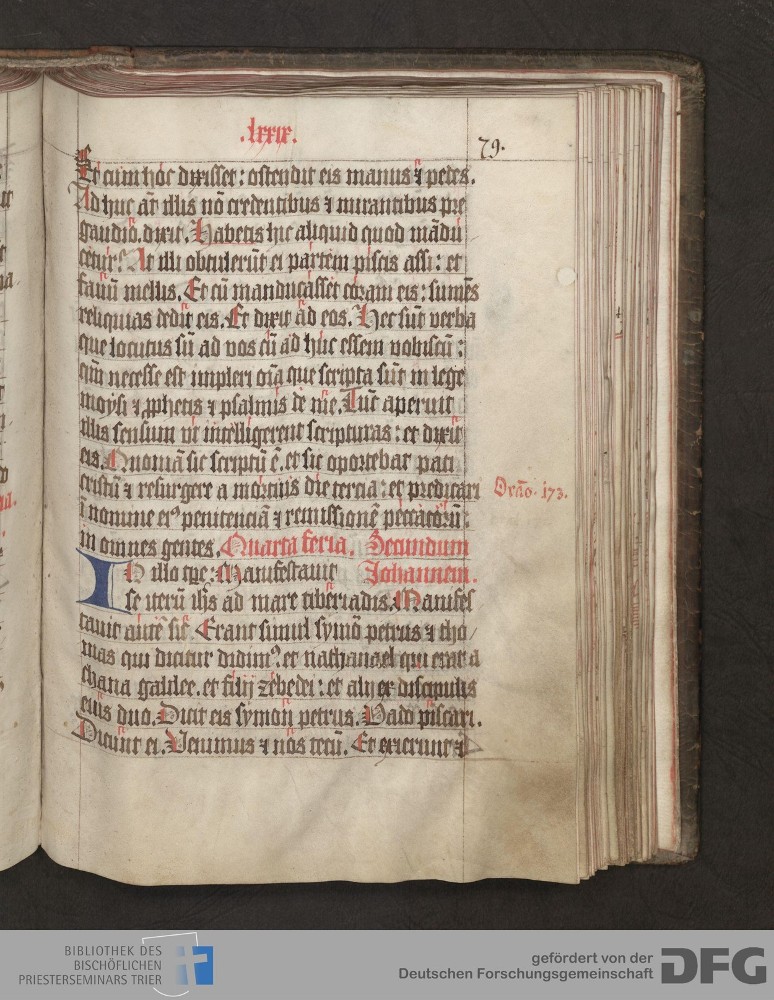 .lxxix.
79.
Et cum hoc dixisset: ostendit eis manus ⁊ pedes.
Ad huc at̄ illis nō credentibus ⁊ mirantibus pre
gaudio. dixit. Habetis hic aliquid quod mādu
cetur? At illi obtulerūt ei partem piscis assi: et
fauū mellis. Et cū manducasset coram eis: sumēs
reliquias dedit eis. Et dixit ad eos. Hec sūt verba
que locutus sū ad vos cū ad huc essem vobiscū:
qm̄ necesse est impleri oīa que scripta sūt in lege
moysi ⁊ ꝓphetis ⁊ psalmis de me. Tūc aperuit
illis sensum ut intelligerent scripturas: et dixit
eis. Quoniā sic scriptū ē. et sic oportebat pati
cristū ⁊ resurgere a mortuis die tercia: et predicari
ī nomine eiꝰ penitenciā ⁊ remissionē peccatorū:
in omnes gentes. Quarta feria. Secundum
IN illo tp̄e: Manifestauit Johannem.
se iterū ih̄s ad mare tiberiadis. Manifes
tauit autē sic. Erant simul symō petrus ⁊ tho
mas qui dicitur didimꝰ. et nathanael qui erat a
chana galilee. et filij zebedei: et alij ex discipulis
eius duo. Dicit eis symon petrus. Vado piscari.
Dicunt ei. Venimus ⁊ nos tecū. Et exierunt ⁊
173.
BIBLIOTHEK DES
BISCHÖFLICHEN
PRIESTERSEMINARS TRIER
gefördert von der
Deutschen Forschungsgemeinschaft
DFG